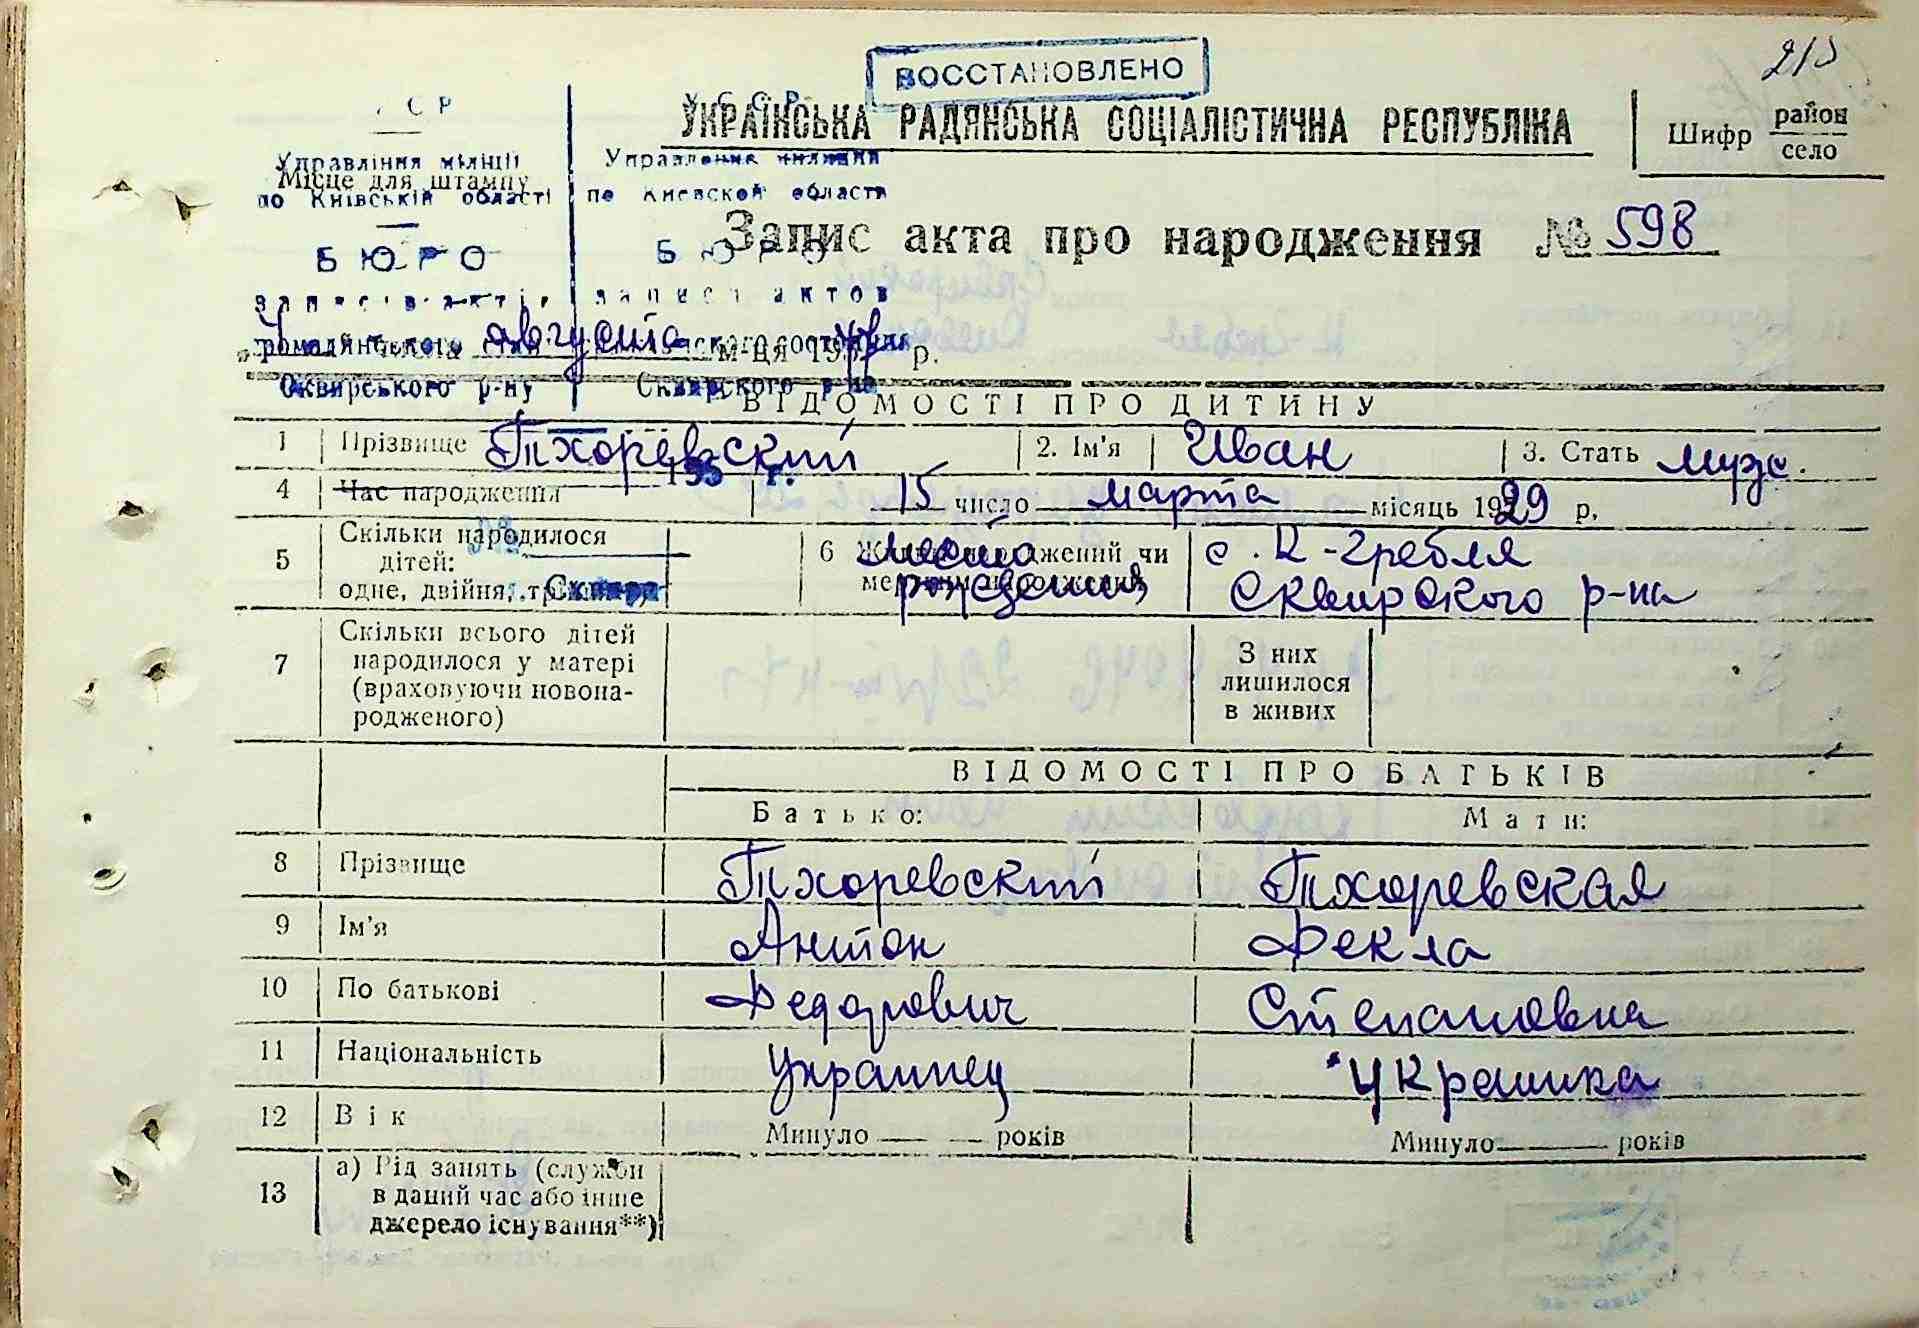 215
ВОССТАНОВЛЕНО
УКРАЇНСЬКА РАДЯНСЬКА СОЦІАЛІСТИЧНА РЕСПУБЛІКА
Шифр район село
СР
УССР
Управління міліції
Управление милиции
Місце для штампу
по Київській області
по Киевской области
Запис акта про народження № 598
БЮРО
БЮРО
записів актів
записи актов
августа м-ця 19 р.
громадянського стан
состояния
Сквирського р-ну
Сквирского р-на
ВІДОМОСТІ ПРО ДИТИНУ
1 Прізвище Тхоревский 2. Ім'я Иван 3. Стать муж.
195 г.
4 Час народження 15 число марта місяць 1929 р.
5 Скільки народилося дітей: одне, двійня,
6 народжений чи
место рождения
с. К-Гребля
Сквирского р-на
Сквира
7 Скільки всього дітей
народилося у матері
(враховуючи новона-
родженого)
З них
лишилося
в живих
ВІДОМОСТІ ПРО БАТЬКІВ
Батько: Мати:
8 Прізвище Тхоревский Тхоревская
9 Ім'я Антон Фекла
10 По батькові Федорович Степановна
11 Національність украинец украинка
12 Вік Минуло — — років Минуло — років
13 а) Рід занять (служби
в даний час або інше
джерело існування**)